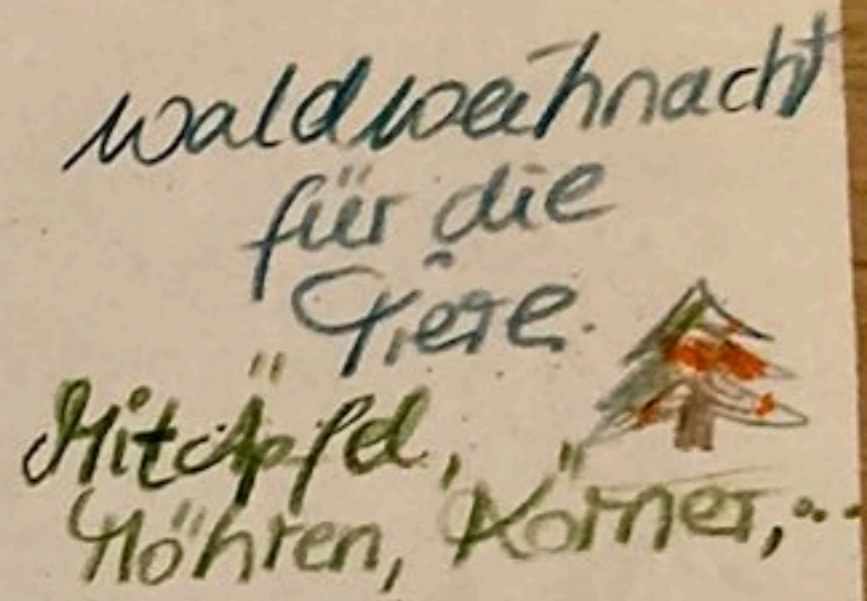 Waldweihnacht
für die
Tiere
Mit Äpfel,
Möhren, Körner,...